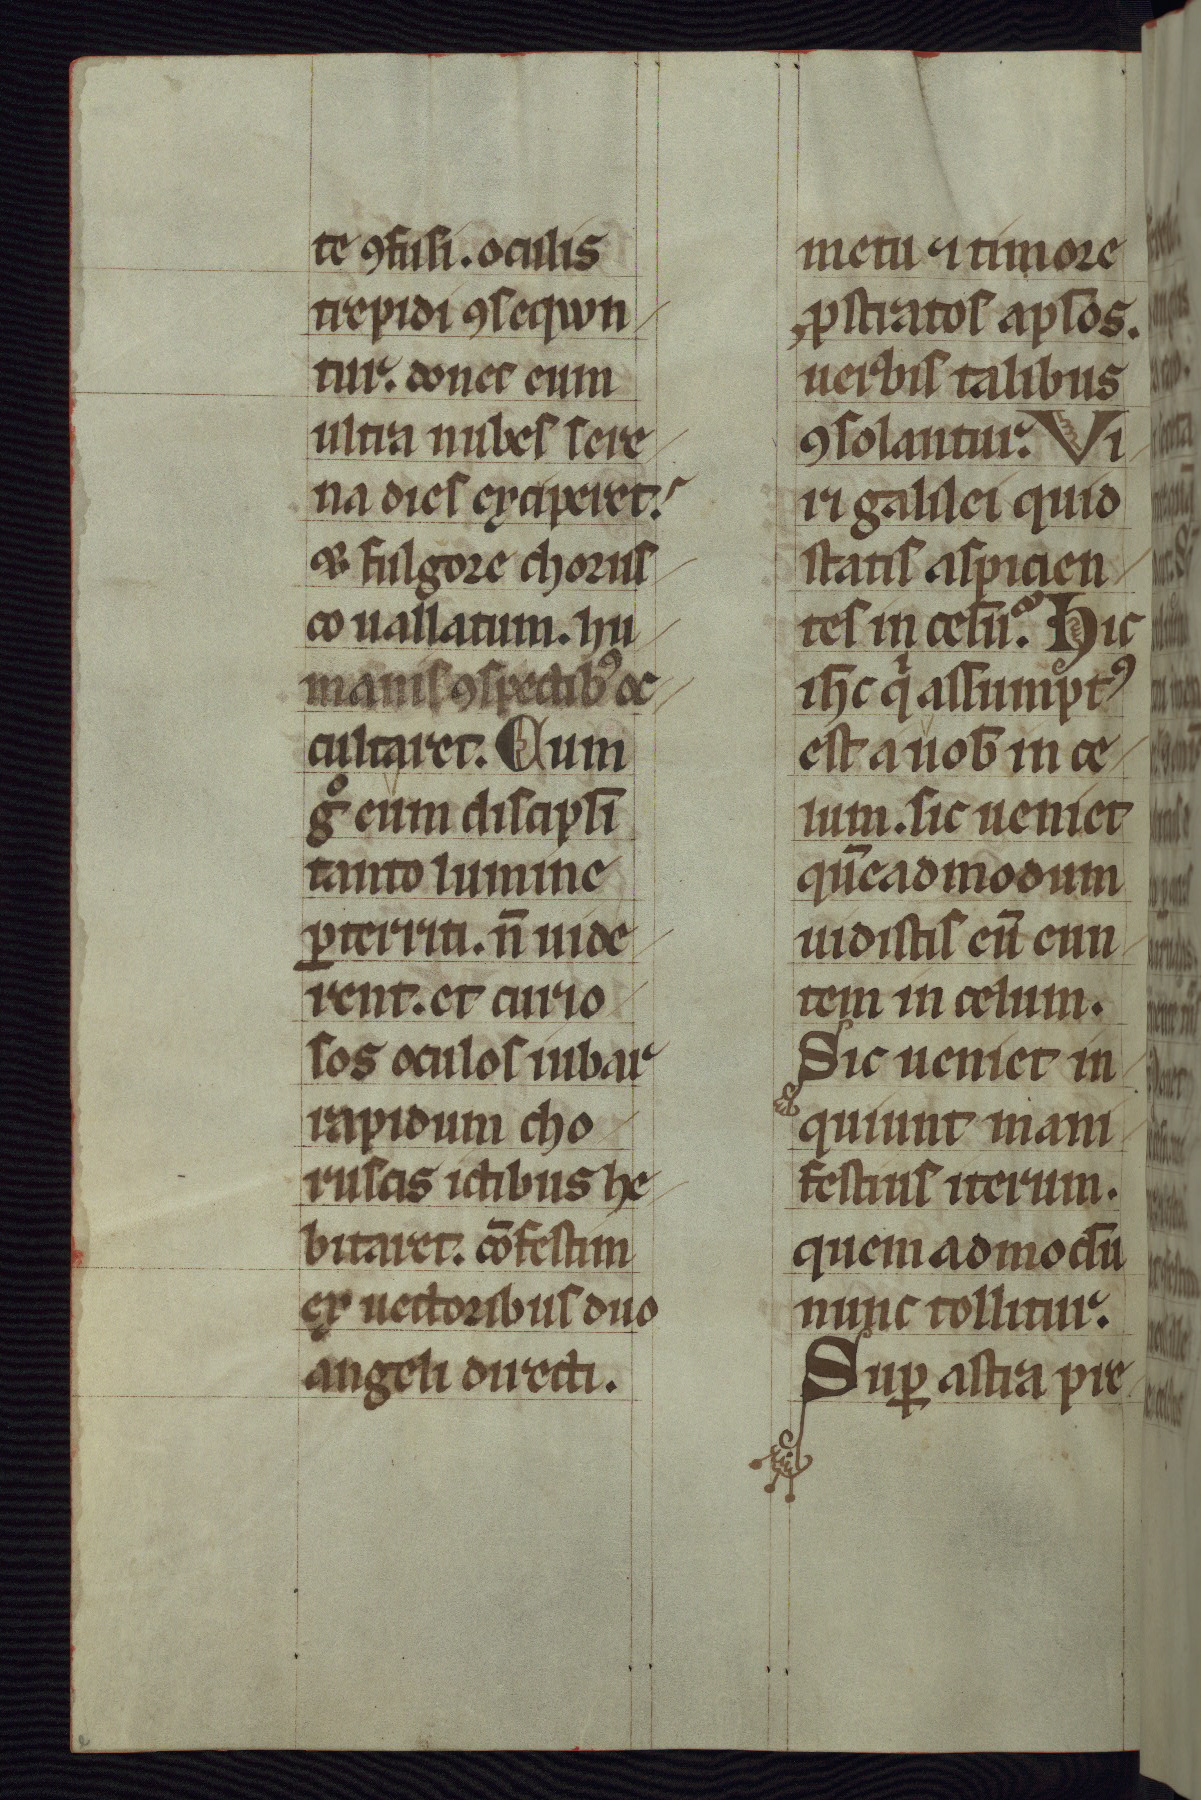 te ꝯfusi. oculis
trepidi ꝯseqwn
tur. donec eum
ultra nubes sere
na dies exciperet.
fulgore chorus
co uallatum. hu
manis ꝯspectibꝰ oc
cultaret. Cum
gͦ eum discipl̄i
tanto lumine
ꝑterriti. n̄ uide
rent. et curio
sos oculos iubar
rapidum cho
ruscis ictibus he
bitaret. cōfestim
ex uectoribus duo
angeli directi.
metu ⁊ timore
ꝓstratos apl̄os.
uerbis talibus
ꝯsolantur. Vi
ri galilei quid
statis aspicien
tes in celū. Hic
ih̄c qͥ assumptꝰ
est a uob̄ in ce
lum. sic ueniet
quēadmodum
uidistis eū eun
tem in celum.
Sic ueniet in
quiunt mani
festius iterum.
quemadmodū
nunc tollitur.
Suꝑ astra pre